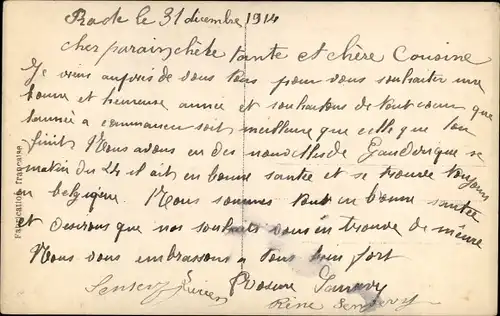 Prade le 31 décembre 1914
cher parain, chère tante et chère Cousine
Je viens auprès de vous tous pour vous souhaiter une
bonne et heureuse année et souhaitons de tout coeur que
l'année a commencer soit meilleure que celle que l'on
finit Nous avons eu des nouvelles de Gauderique se
matin du 24 il ait en bonne santee et se trouve toujours
en belgique. Nous sommes tout en bonne santée
et desirons que nos souhaits vous en trouve de même
Nous vous embrassons a tous bien fort
Fabrication française